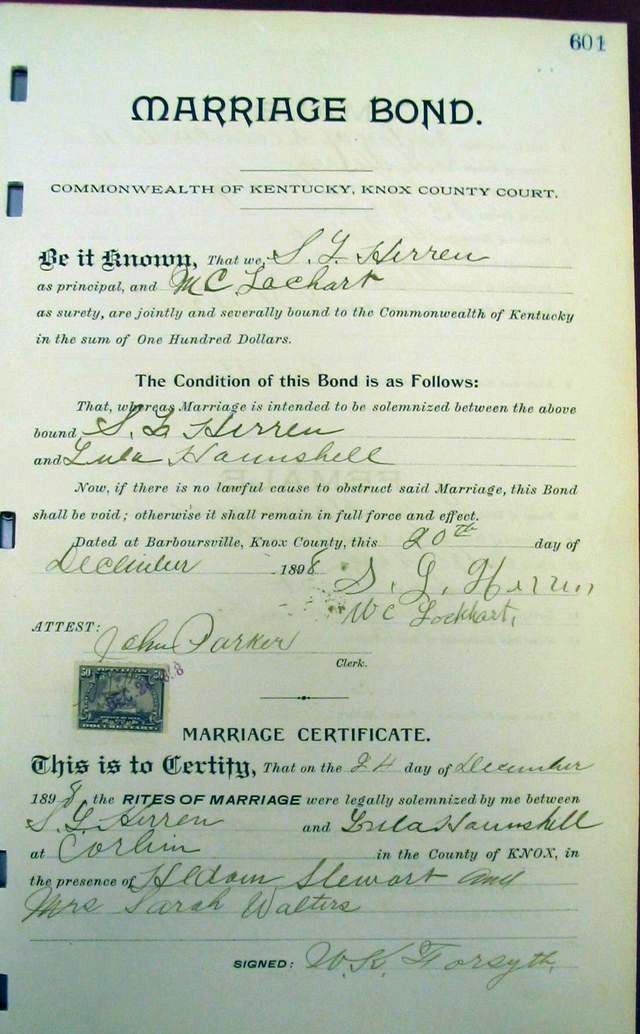 601
MARRIAGE BOND.
COMMONWEALTH OF KENTUCKY, KNOX COUNTY COURT.
Be it Known, That we, S. L. Herren
as principal, and MC Lochart
as surety, are jointly and severally bound to the Commonwealth of Kentucky
in the sum of One Hundred Dollars.
The Condition of this Bond is as Follows:
That, whereas Marriage is intended to be solemnized between the above
bound S. L. Herren
and Lula Hounshell
Now, if there is no lawful cause to obstruct said Marriage, this Bond
shall be void; otherwise it shall remain in full force and effect.
Dated at Barboursville, Knox County, this 20th day of
December 1898
S. L. Herren
WC Lockhart,
ATTEST:
John Parker
Clerk.
50 50
DOCUMENTARY
MARRIAGE CERTIFICATE.
This is to Certify, That on the 24 day of December
1898, the RITES OF MARRIAGE were legally solemnized by me between
S. L. Herren and Lula Hounshell
at Corbin in the County of KNOX, in
the presence of Stewart and
Mrs Sarah Walters
SIGNED: W. K. Forsyth